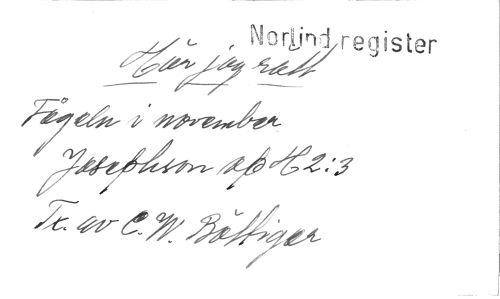 Norlind register
Hör jag rätt
Fågeln i november
Josephson op H2:3
Tx. av C. W. Böttiger